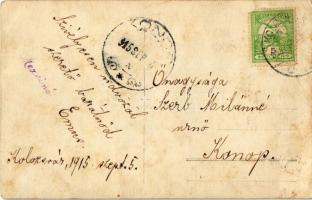 Szívélyesen üdvözöl
szerető barátnőd
Emma
Kolozsvár, 1915 szept. 5.
Őnagysága
Szerb Milánné
urnő
Konop.